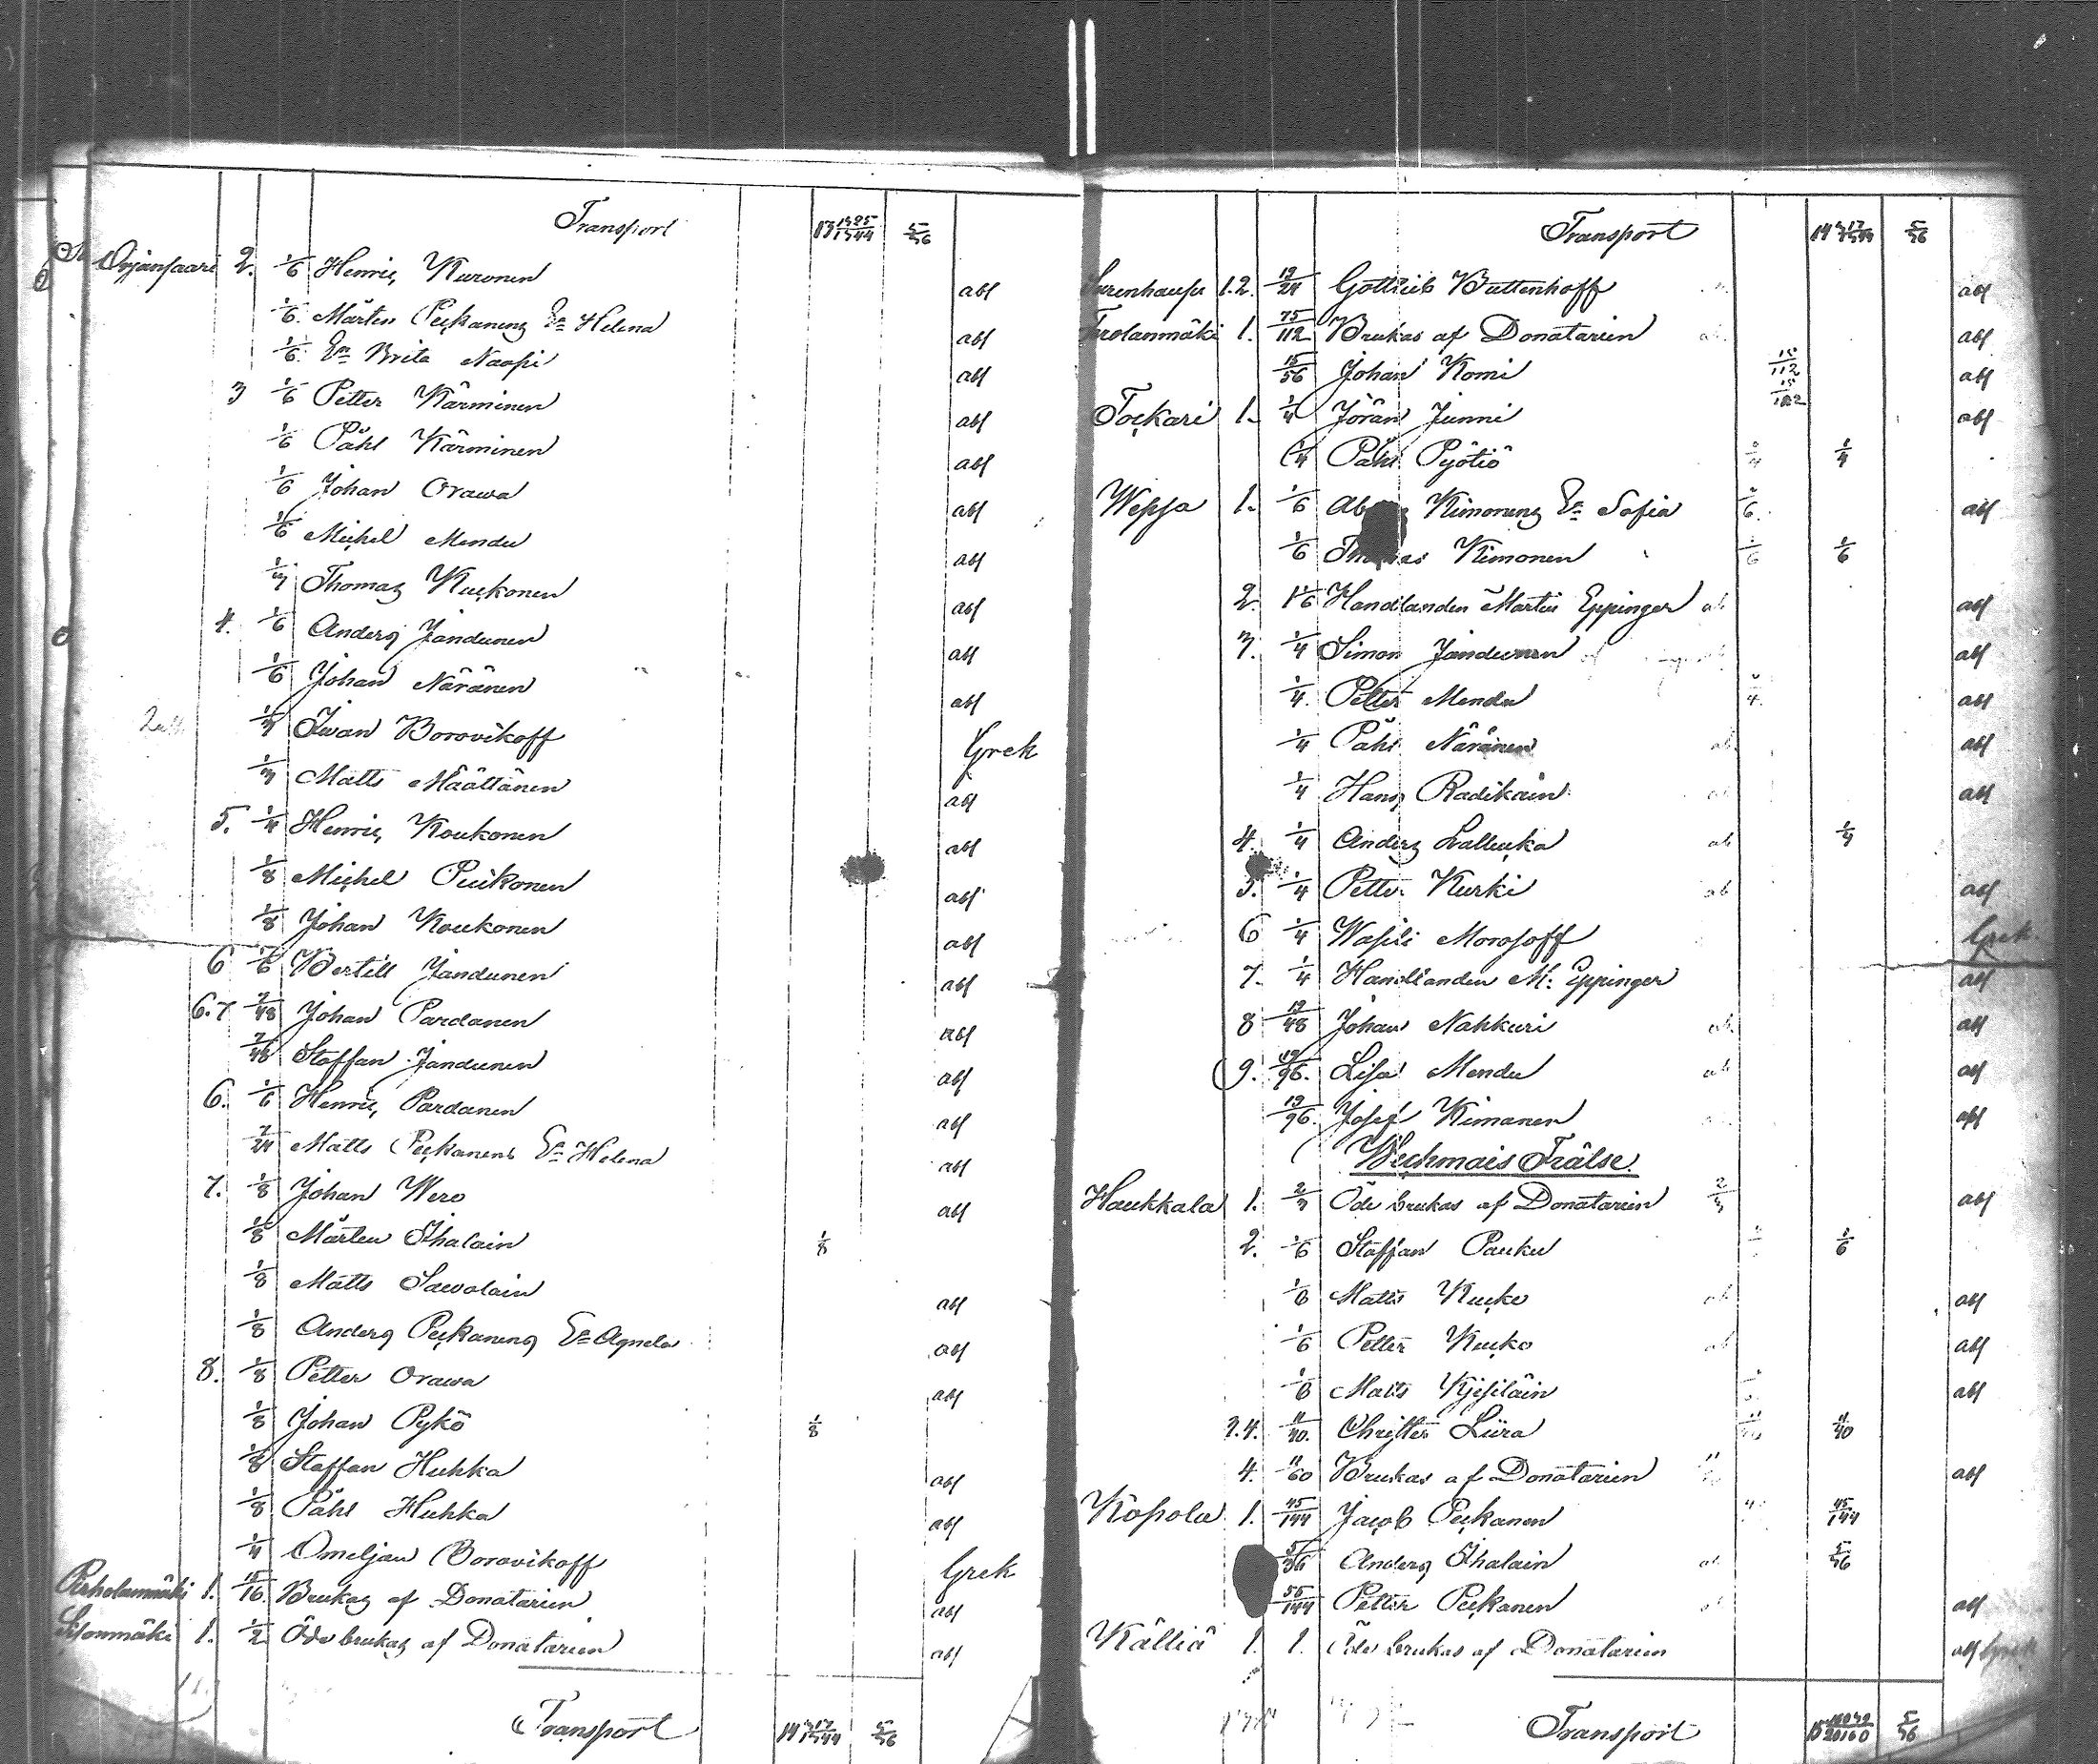 Transport 5/36
Orjansaari 2. 1/6 Henric Kuronen abf
1/6 Mårten Peckanens Ea Helena abf
1/6 Brita Naapi abf
3 1/6 Petter Kärminen abf
1/6 Påhl Kärminen abf
1/6 Johan Orawa abf
1/6 Michel Mendu abf
Thomas Kuckonen abf
4. 1/6 Anders Jandunen abf
1/6 Johan Näränen abf
Iwan Borovikoff Grek
Matts Määttänen abf
5. 1/4 Henric Koukonen abf
1/8 Michel Puikonen abf
1/8 Johan Koukonen abf
6 1/6 Bertill Jandunen abf
6.7 7/48 Johan Pardanen abf
7/48 Staffan Jandunen abf
6. 1/6 Henric Pardanen abf
7/24 Matts Peckanens Ea Helena abf
7. 1/8 Johan Wero abf
1/8 Mårten Ihalain 1/8
1/8 Matts Sawolain abf
1/8 Anders Peckanens Ea Agneta abf
8. 1/8 Petter Orawa abf
1/8 Johan Pykö 1/8
1/8 Staffan Huhka abf
1/8 Påhl Huhka abf
1/4 Omeljan Borovikoff Grek
Pirholanmäki 1. 15/16 Brukas af Donatarien abf
1. 1/2 Öde brukas af Donatarien abf
Transport 5/36
Transport 5/36
1.2. 19/24 Gottlieb Buttenhoff abf
1. 75/112 Brukas af Donatarien abf
15/56 Johan Komi 15/112 abf
15/112
Tockari 1. 1/4 Jöran Junni abf
1/4 Påhl Pyötiö 1/4
Wepsa 1. 1/6 Kimonens Ea Sofia abf
1/6 Thomas Kimonen 1/6
2. 1/6 Handlanden Martin Eppinger abf
3. 1/4 Simon Jandunen abf
1/4 Petter Mendu abf
1/4 Påhl Näränen abf
1/4 Hans Radikain abf
4. 1/4 Anders Lallucka 1/4
5. 1/4 Petter Kurki abf
6 1/4 Wasili Morosoff Grek
7. 1/4 Handlanden M: Eppinger abf
8 19/48 Johan Nahkuri abf
9. 19/96 Lisa Mendu abf
19/96 Josef Kimanen abf
Wechmais Frälse.
Haukkala 1. 2/3 Öde brukas af Donatarien 2/3 abf
2. 1/6 Staffan Pauku 1/6
1/6 Matts Kucko abf
1/6 Petter Kucko abf
1/6 Matts Kjesiläin abf
3.4. 11/40 Christer Liira 11/40
4. 11/60 Brukas af Donatarien abf
Kopola 1. 45/144 Jacob Peckanen 45/144
5/36 Anders Ihalain 5/36
55/144 Petter Peckanen abf
Källiä 1. 1. Öde brukas af Donatarien abf
Transport 5/36